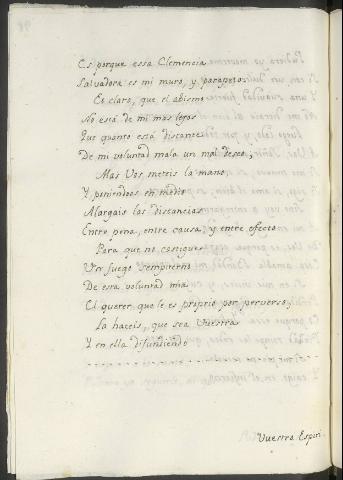 Es porque essa Clemencia
Salvadora es mi muro, y parapeto.
Es claro, que el abismo
No está de mi mas lejos
Que quanto está distante
De mi voluntad mala un mal deseo;
Mas Vos meteis la mano
Y poniendoos en medio
Alargais las distancias
Entre pena, entre causa, y entre efecto
Para que no castigue
Un fuego sempiterno
De esta voluntad mia
El querer, que le es proprio por perverso,
La haceis, que sea Vuestra
Y en ella difundiendo
Vuestro Espiri